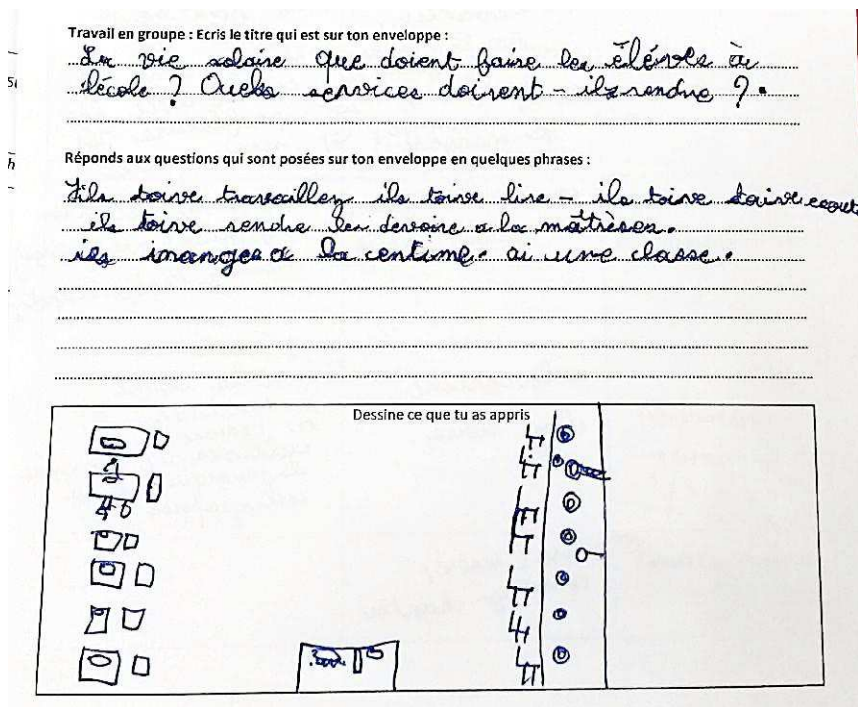 Travail en groupe : Ecris le titre qui est sur ton enveloppe :
La vie solaire que doient faire les élèves à
lécole ? Quels services doivent - ils rendre ?.
Réponds aux questions qui sont posées sur ton enveloppe en quelques phrases :
ils doive travailler ils doive lire - ils doive
ils doive rendre les devoire a la maîtrèses.
ils manges a la centime. ai une classe.
Dessine ce que tu as appris